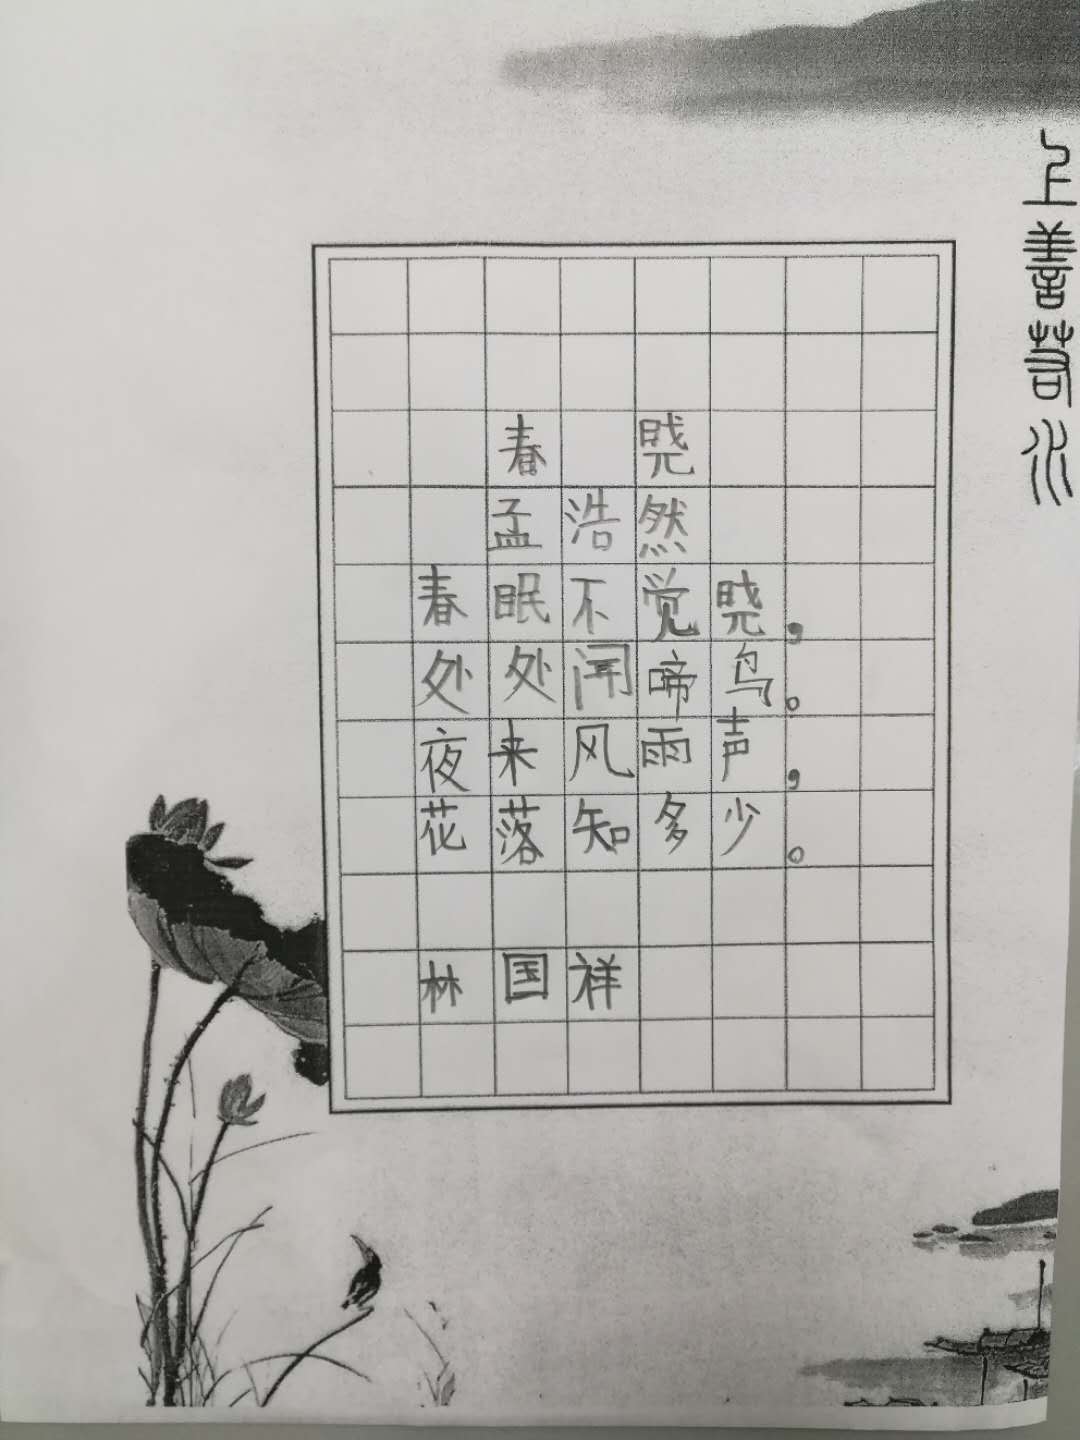 上善若水
春 晓
孟浩然
春眠不觉晓，
处处闻啼鸟。
夜来风雨声，
花落知多少。
林国祥